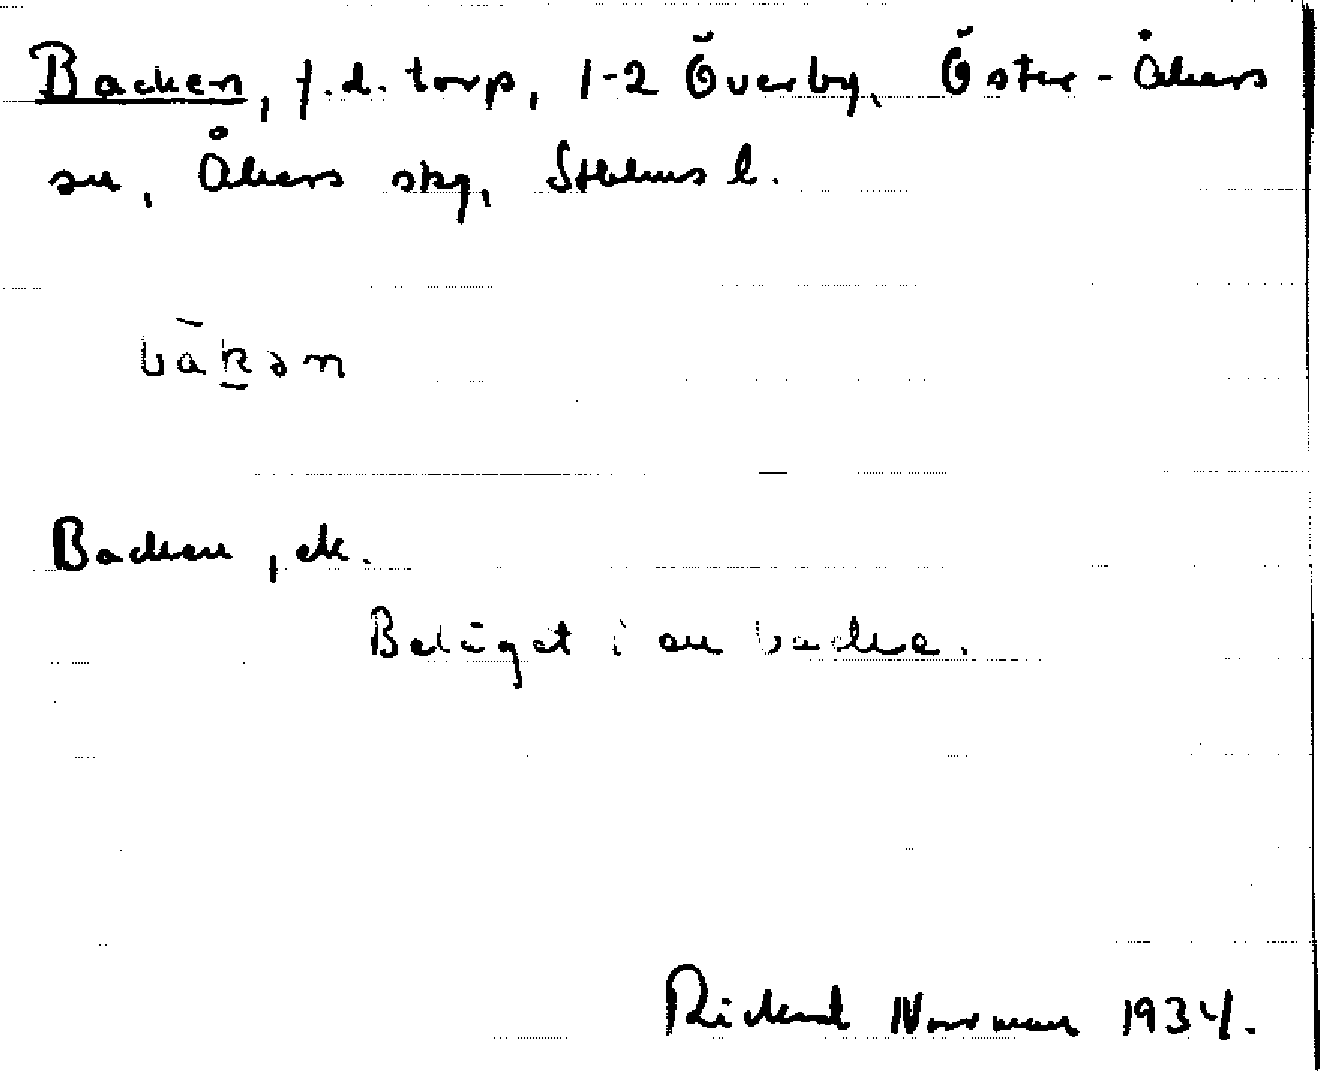 Backen, f.d. torp, 1-2 Överby, Öster-Åkers
sn, Åkers skg, Sthlms l.
bàk̲ən
Backen, ek.
Beläget i en backe.
Rickard Norrman 1934.